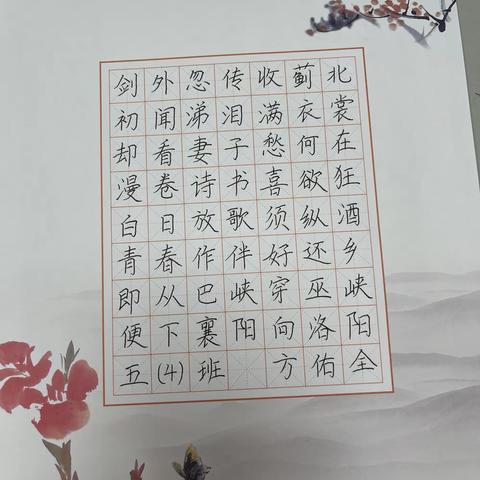 剑外忽传收蓟北
初闻涕泪满衣裳
却看妻子愁何在
漫卷诗书喜欲狂
白日放歌须纵酒
青春作伴好还乡
即从巴峡穿巫峡
便下襄阳向洛阳
五(4)班 方佑全